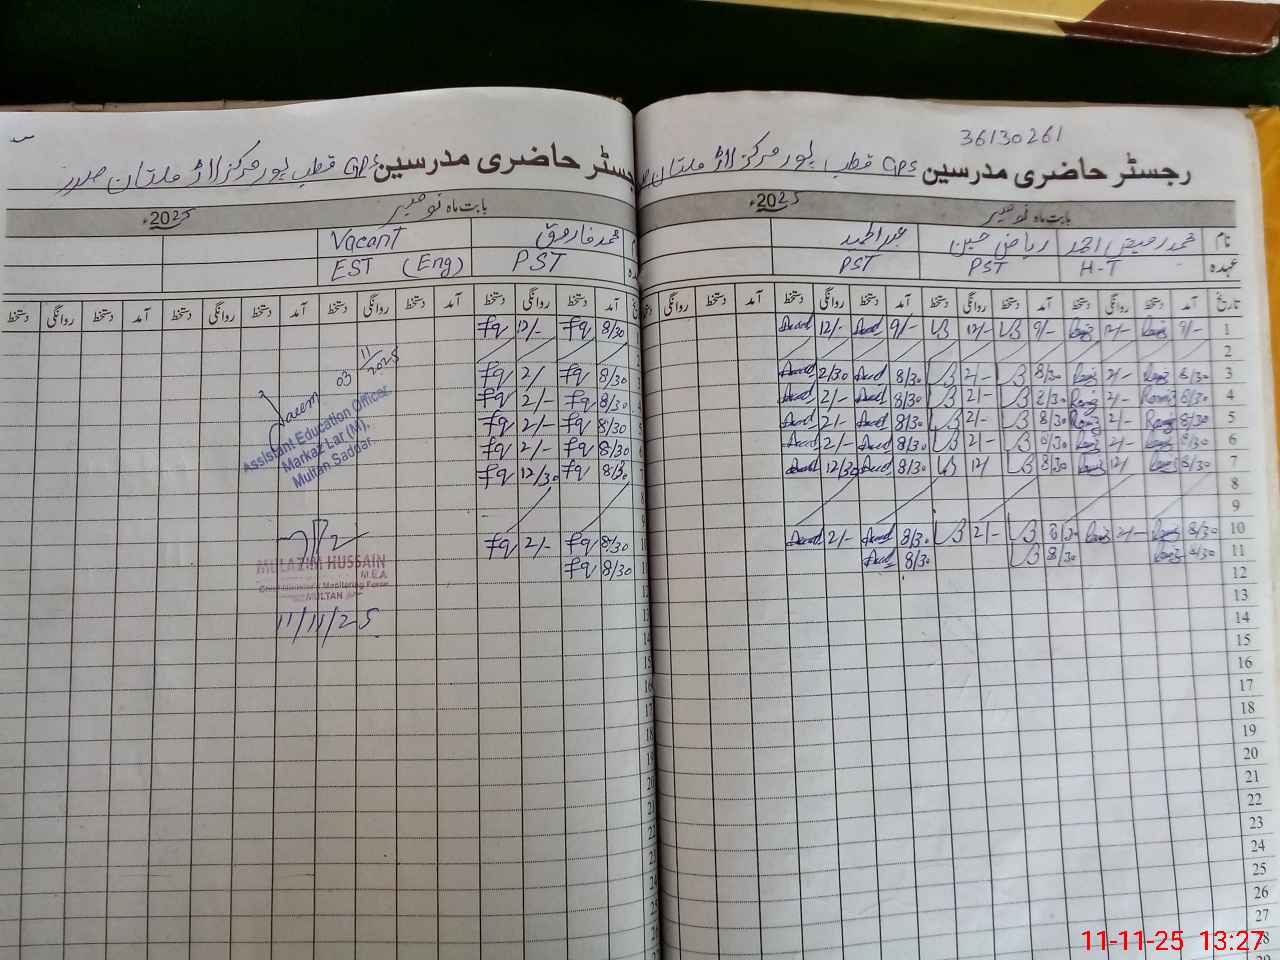 36130261
رجسٹر حاضری مدرسین GPS قطب پور مرکز لاڑ ملتان صدر
بابت ماہ نومبر 2025ء
نام محمد رمیض احمد ریاض حسین عبدالحمید
عہدہ H-T PST PST
تاریخ آمد دستخط روانگی دستخط آمد دستخط روانگی دستخط آمد دستخط روانگی دستخط آمد دستخط روانگی
1 9/- 12/- 9/- 12/- 9/- 12/-
2
3 8/30 2/- 8/30 2/- 8/30 2/30
4 8/30 2/- 8/30 2/- 8/30 2/-
5 8/30 2/- 8/30 2/- 8/30 2/-
6 8/30 2/- 8/30 2/- 8/30 2/-
7 8/30 12/ 8/30 12/ 8/30 12/30
8
9
10 8/30 2/- 8/30 2/- 8/30 2/-
11 8/30 8/30 8/30
12
13
14
15
16
17
18
19
20
21
22
23
24
25
26
27
28
رجسٹر حاضری مدرسین GPS قطب پور مرکز لاڑ ملتان صدر
بابت ماہ نومبر 2025ء
محمد فاروق Vacant
PST EST (Eng)
آمد دستخط روانگی دستخط آمد دستخط روانگی دستخط آمد دستخط روانگی دستخط آمد دستخط روانگی دستخط
8/30 fq 12/- fq
8/30 fq 2/ fq
8/30 fq 2/- fq
8/30 fq 2/- fq
8/30 fq 2/- fq
8/30 fq 12/30 fq
8/30 fq 2/- fq
8/30 fq
03/11/2025
Assistant Education Officer
Markaz Lar (M),
Multan Saddar
MULAZIM HUSSAIN
M.E.A
Chief Minister's Monitoring Force
MULTAN
11/11/25
11-11-25 13:27